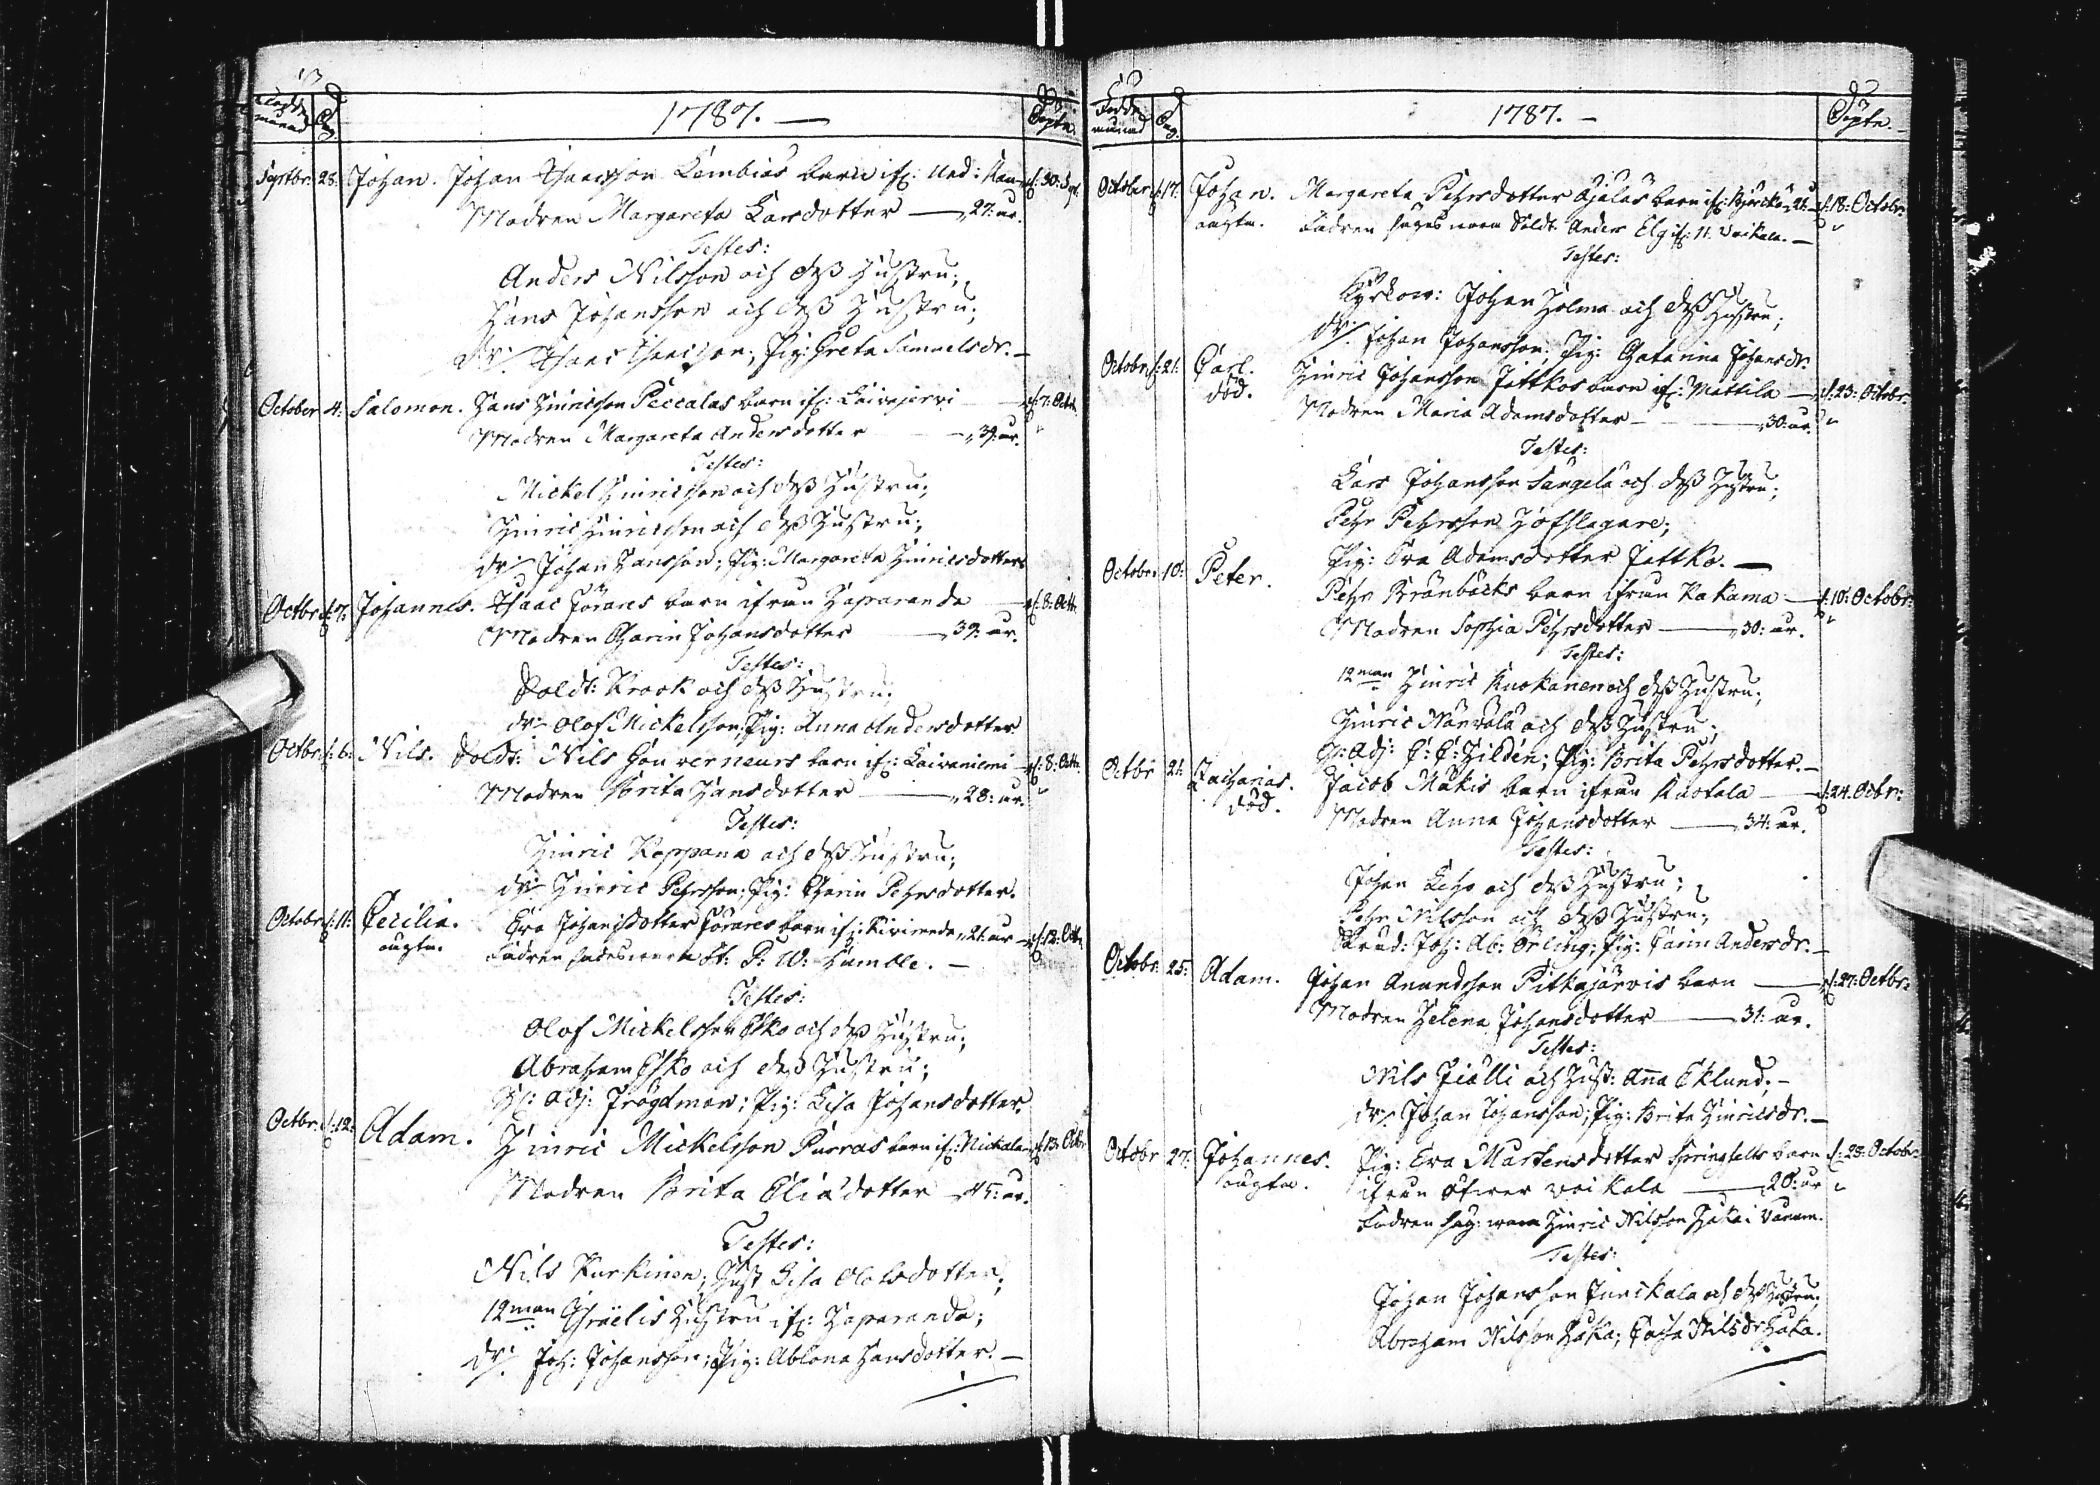 1787.
Septbr. 28. Johan. Johan Isacsson Lembias barn if: Ned: d. 30: Sept.
Modren Margareta Larsdotter — 27: år.
Testes:
Anders Nilsson och dess Hustru;
Hans Johansson och dess Hustru;
dr: Isaac Isacsson; Pig: Greta Samuelsdr. —
October 4. Salomon. Hans Hinricsson Peccalas barn if: Kaivajervi — d. 7: Octbr.
Modren Margareta Andersdotter — 39: år.
Testes:
Mickel Hinricsson och dess Hustru;
Hinric Hinricsson och dess Hustru;
dr: Johan Hansson; Pig: Margareta Hinricsdotter
Octbr. d. 7: Johannes. Isaac Föräres barn ifrån Haparanda — d. 8: Octb.
Modren Charin Johansdotter — 39: år.
Testes:
Soldt: Krook och dess Hustru;
dr: Olof Mickelsson; Pig: Anna Andersdotter
Octbr. d. 6: Nils. Soldt: Nils Gouverneurs barn if: Laivaniemi — d. 8: Octbr.
Modren Brita Hansdotter — 28: år.
Testes:
Hinric Koppana och dess Hustru;
dr: Hinric Pehrsson; Pig: Charin Pehrsdotter.
Octobr. d. 11: Cecilia. Eva Johansdotter Föräres barn if: Kiviranda 21: år — d. 12: Octbr.
oägta. Fadren sades wara St: P: W: Humble. —
Testes:
Olof Mickelsson Esko och dess Hustru;
Abraham Esko och dess Hustru;
Adj: Frögdman; Pig: Lisa Johansdotter.
Octbr. d. 12: Adam. Hinric Mickelsson Purras barn if: Nickala d. 13: Octbr
Modren Brita Eliædotter — 45: år.
Testes:
Nils Kurkinen; Hust Lisa Olofsdotter;
12man Israelis Hustru if: Haparanda;
dr: Joh: Johansson; Pig: Ablona Hansdotter. —
1787. —
October d. 17: Johan. Margareta Pehrsdotter Ajalas barn if: Björckön 21: d. 18: Octobr:
oägta. Fadren sages wara Soldt. Anders Elg if: N. Vojkala. —
Testes:
Kyrkow: Johan Holma och dess Hustru;
dr: Johan Johansson; Pig: Catarina Johansdr.
Octobr. d. 21: Carl. Hinric Johansson Jattkos barn if: Mattila — d. 23: Octobr.
död. Modren Maria Adamsdotter — 30: år.
Testes:
Lars Johansson Sangela och dess Hustru;
Pehr Pehrsson Hofslagare;
Pig: Eva Adamsdotter Jattko. —
October 10: Peter. Pehr Brönbäcks barn ifrån Kakama — d. 10: Octobr:
Modren Sophia Pehrsdotter — 30: år.
Testes:
12man Hinric Kuokanen och dess Hustru;
Hinric Närvälä och dess Hustru;
Adj: E: E: Hildén; Pig: Brita Pehrsdotter. —
Octbr 21: Zacharias. Jacob Mäkis barn ifrån Ruotala — d. 24. Ocbr:
död. Modren Anna Johansdotter — 34: år.
Testes:
Johan Leho och dess Hustru;
Pehr Nilsson och dess Hustru;
Stud: Joh: Ab: Örling; Pig: Carin Andersdr. —
Octobr. 25: Adam. Johan Anundsson Pitkäjärvis barn — d. 27: Octbr:
Modren Helena Johansdotter — 31: år.
Testes:
Nils Fiälli och Hust: Anna Eklund; —
dr: Johan Johansson; Pig: Brita Hinricsdr. —
Octobr 27: Johannes. Pig: Eva Mårtensdotter Springfelts barn d. 28: October:
oägta. ifrån Öfwer Voikala — 20: år
Fadren sag: wara Hinric Nilsson Haka i Vanam.
Testes:
Johan Johansson Junckala och dess Hustru;
Abraham Nilsson Haka; Caisa Nilsdr Haka.